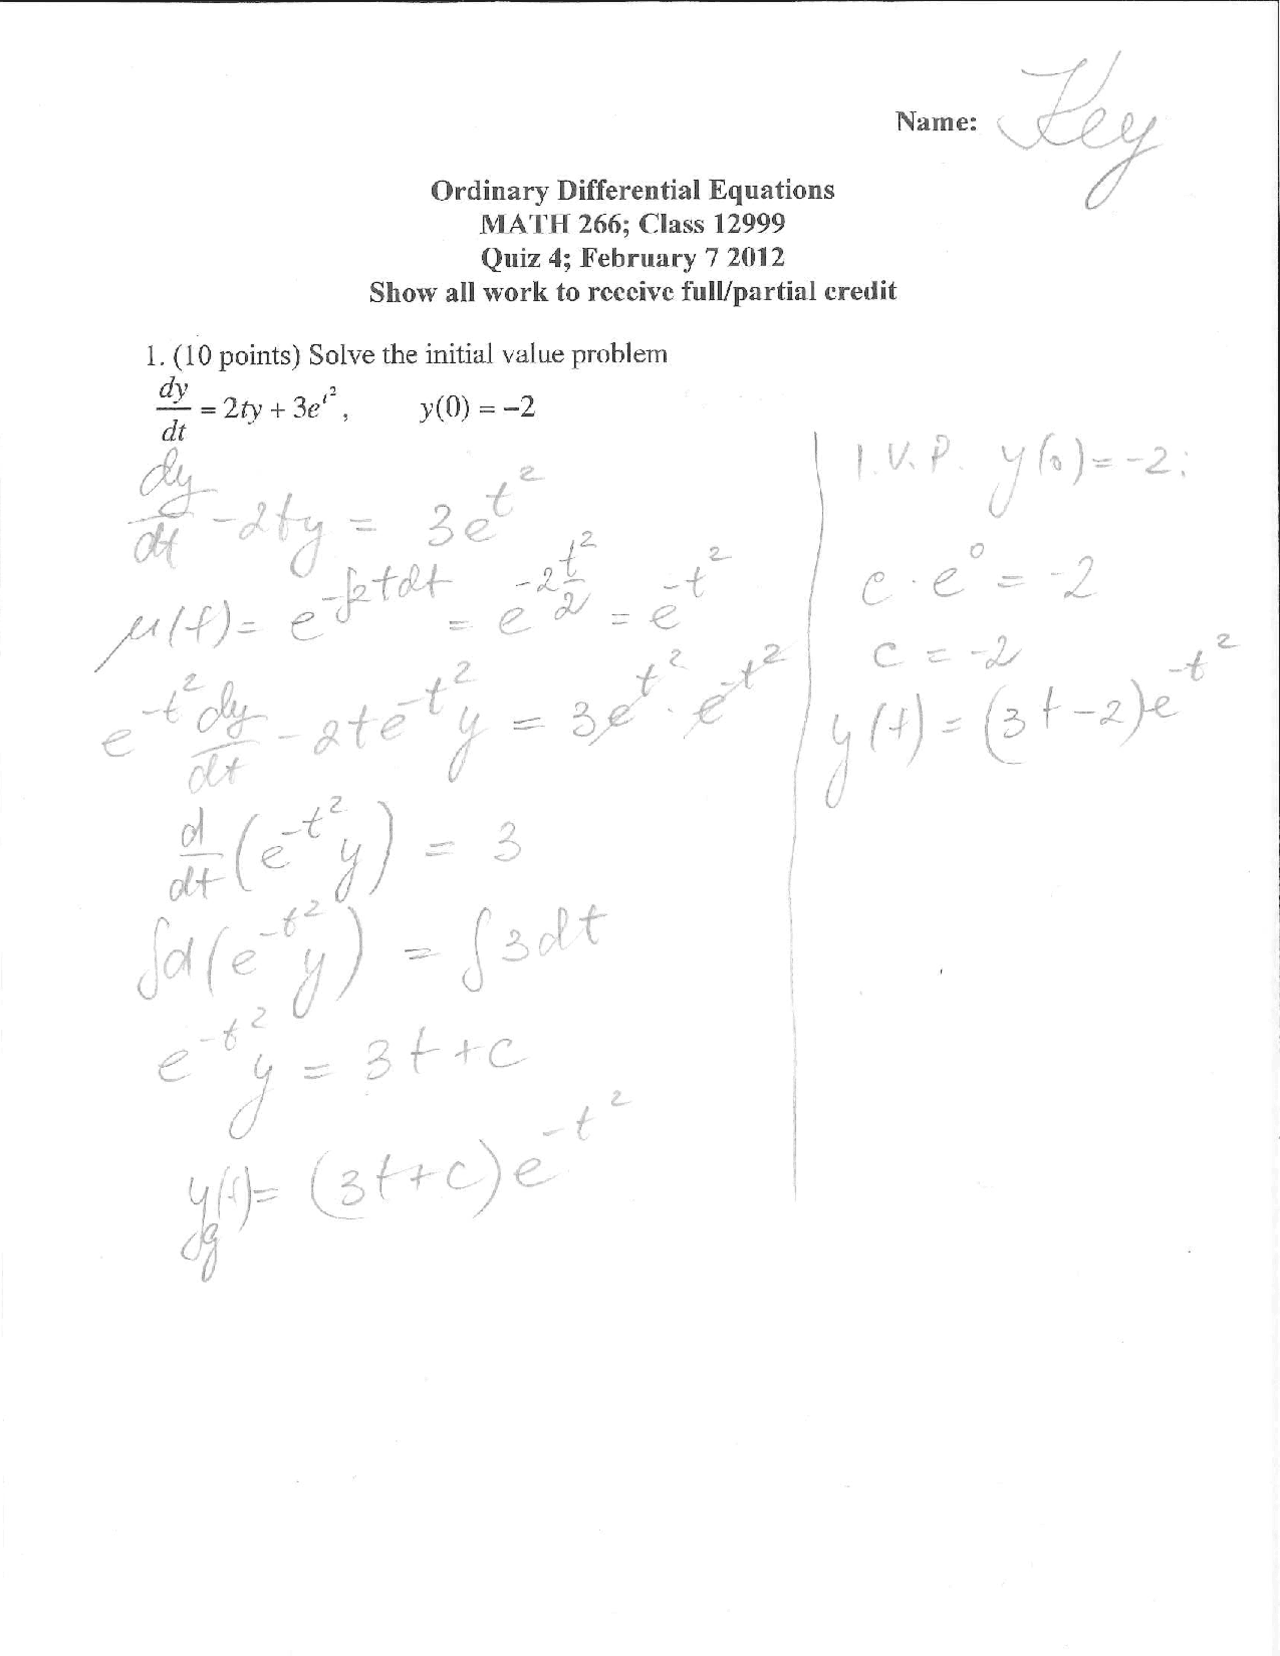 Name: Key
Ordinary Differential Equations
MATH 266; Class 12999
Quiz 4; February 7 2012
Show all work to receive full/partial credit
1. (10 points) Solve the initial value problem
dy/dt = 2ty + 3e^{t^2}, y(0) = -2
dy/dt - 2ty = 3e^{t^2}
μ(t) = e^{-∫2tdt} = e^{-2 t^2/2} = e^{-t^2}
e^{-t^2} dy/dt - 2te^{-t^2}y = 3e^{t^2} · e^{-t^2}
d/dt (e^{-t^2}y) = 3
∫d(e^{-t^2}y) = ∫3dt
e^{-t^2}y = 3t + c
y_g(t) = (3t+c)e^{-t^2}
I.V.P. y(0) = -2:
c · e^0 = -2
c = -2
y(t) = (3t-2)e^{-t^2}